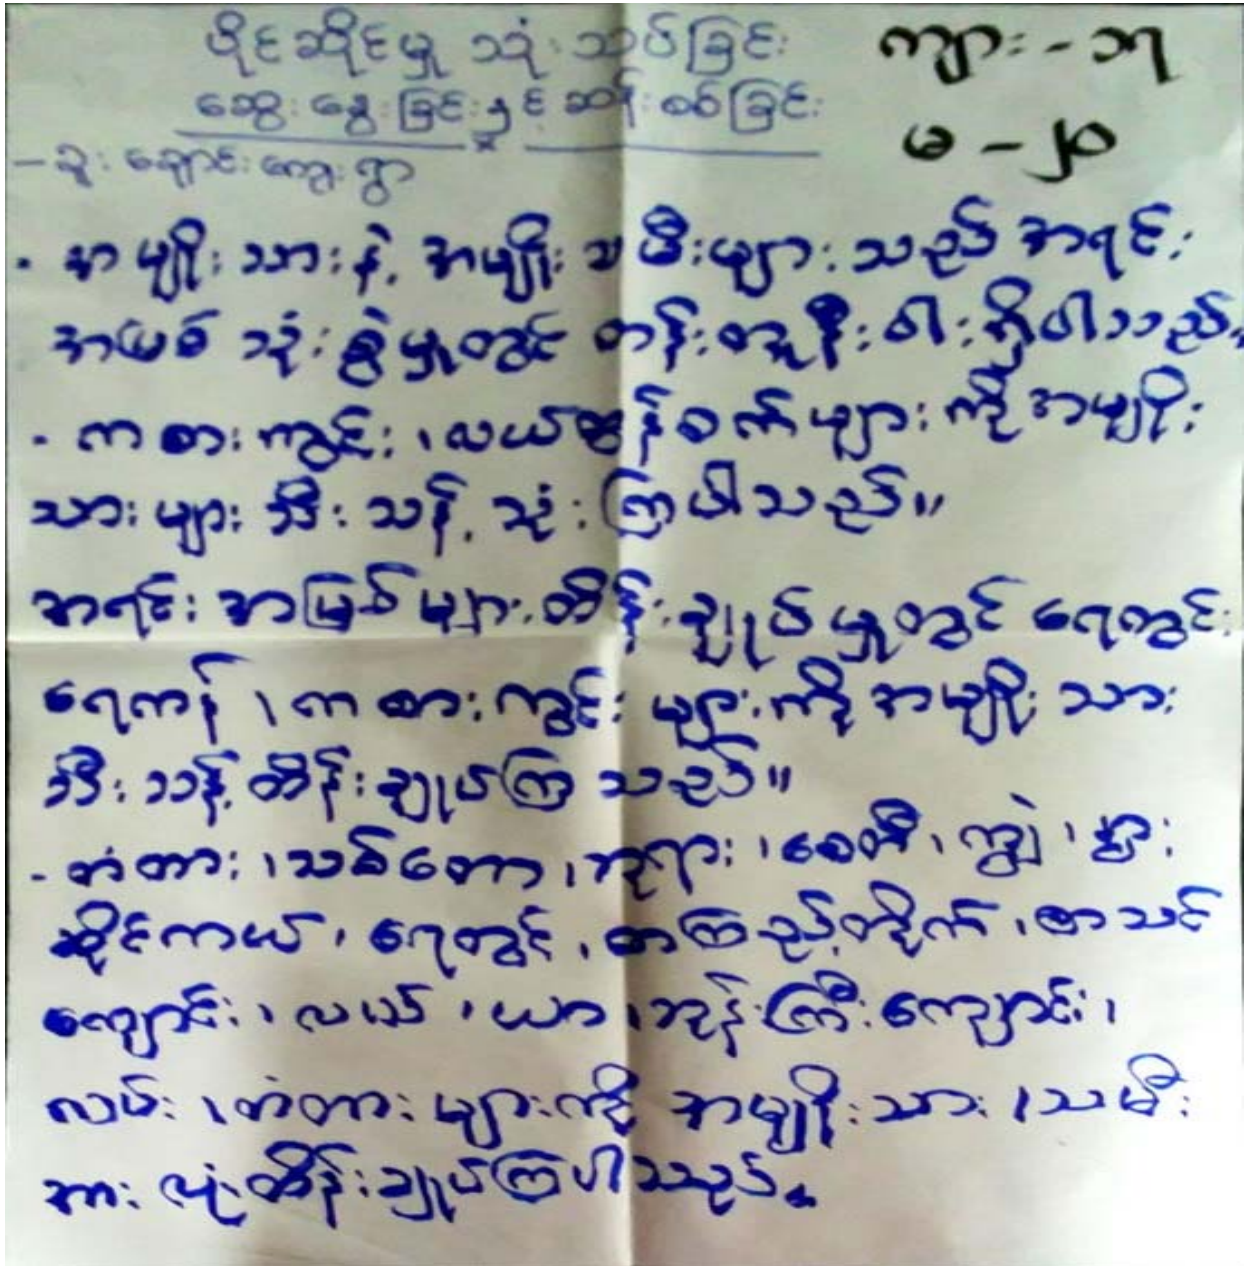 ပိုင်ဆိုင်မှု သုံးသပ်ခြင်း
ကျား - ၁၅
ဆွေးနွေးခြင်းနှင့် ဆန်းစစ်ခြင်း
မ - ၂၀
- ဆူးချောင်းကျေးရွာ
- အမျိုးသားနဲ့ အမျိုးသမီးများသည် အရင်း
အမြစ် သုံးစွဲမှုတွင် တန်းတူညီ ရှိပါသည်။
- ကစားကွင်း၊ လယ်ထွန်စက်များကို အမျိုး
သားများ သီးသန့် သုံးကြပါသည်။
အရင်းအမြစ်များထိန်းချုပ်မှုတွင် ရေတွင်း
ရေကန်၊ ကစားကွင်းများကို အမျိုးသား
သီးသန့် ထိန်းချုပ်ကြသည်။
- တံတား၊ သစ်တော၊ ဘုရား၊ စေတီ၊ ကျွဲ၊ နွား
ဆိုင်ကယ်၊ ရေတွင်း၊ စာကြည့်တိုက်၊ စာသင်
ကျောင်း၊ လယ်၊ ယာ၊ ဘုန်းကြီးကျောင်း၊
လမ်း၊ တံတားများကို အမျိုးသား၊ သမီး
အားလုံးထိန်းချုပ်ကြပါသည်။